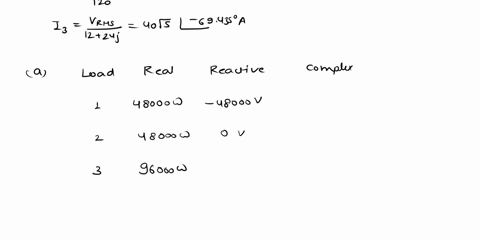 120
I3 = VRMS / 12+24j = 40√5 ∠-69.435° A
(a) Load Real Reactive Complex
1 48000 W -48000 V
2 48000 W 0 V
3 96000 W